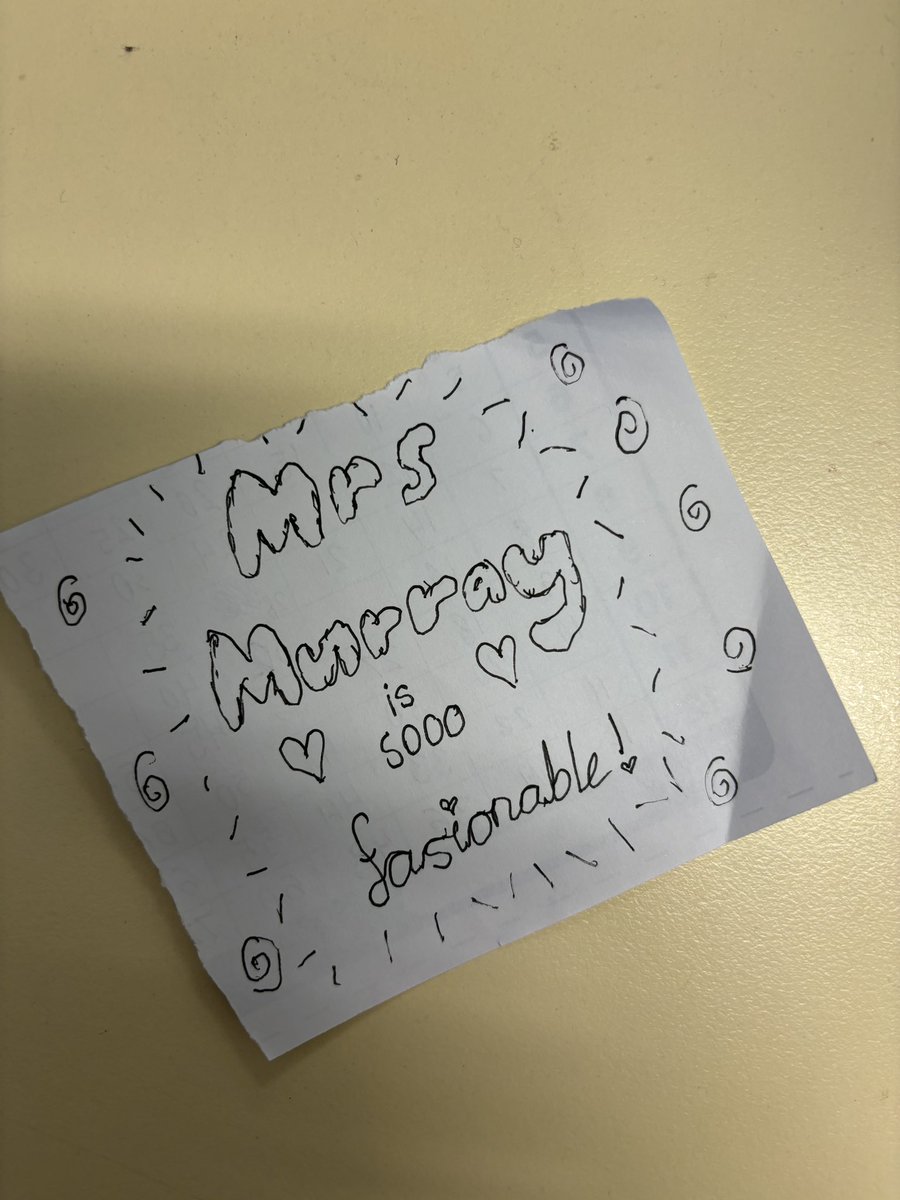 Mrs
Murray
is
sooo
fasionable!